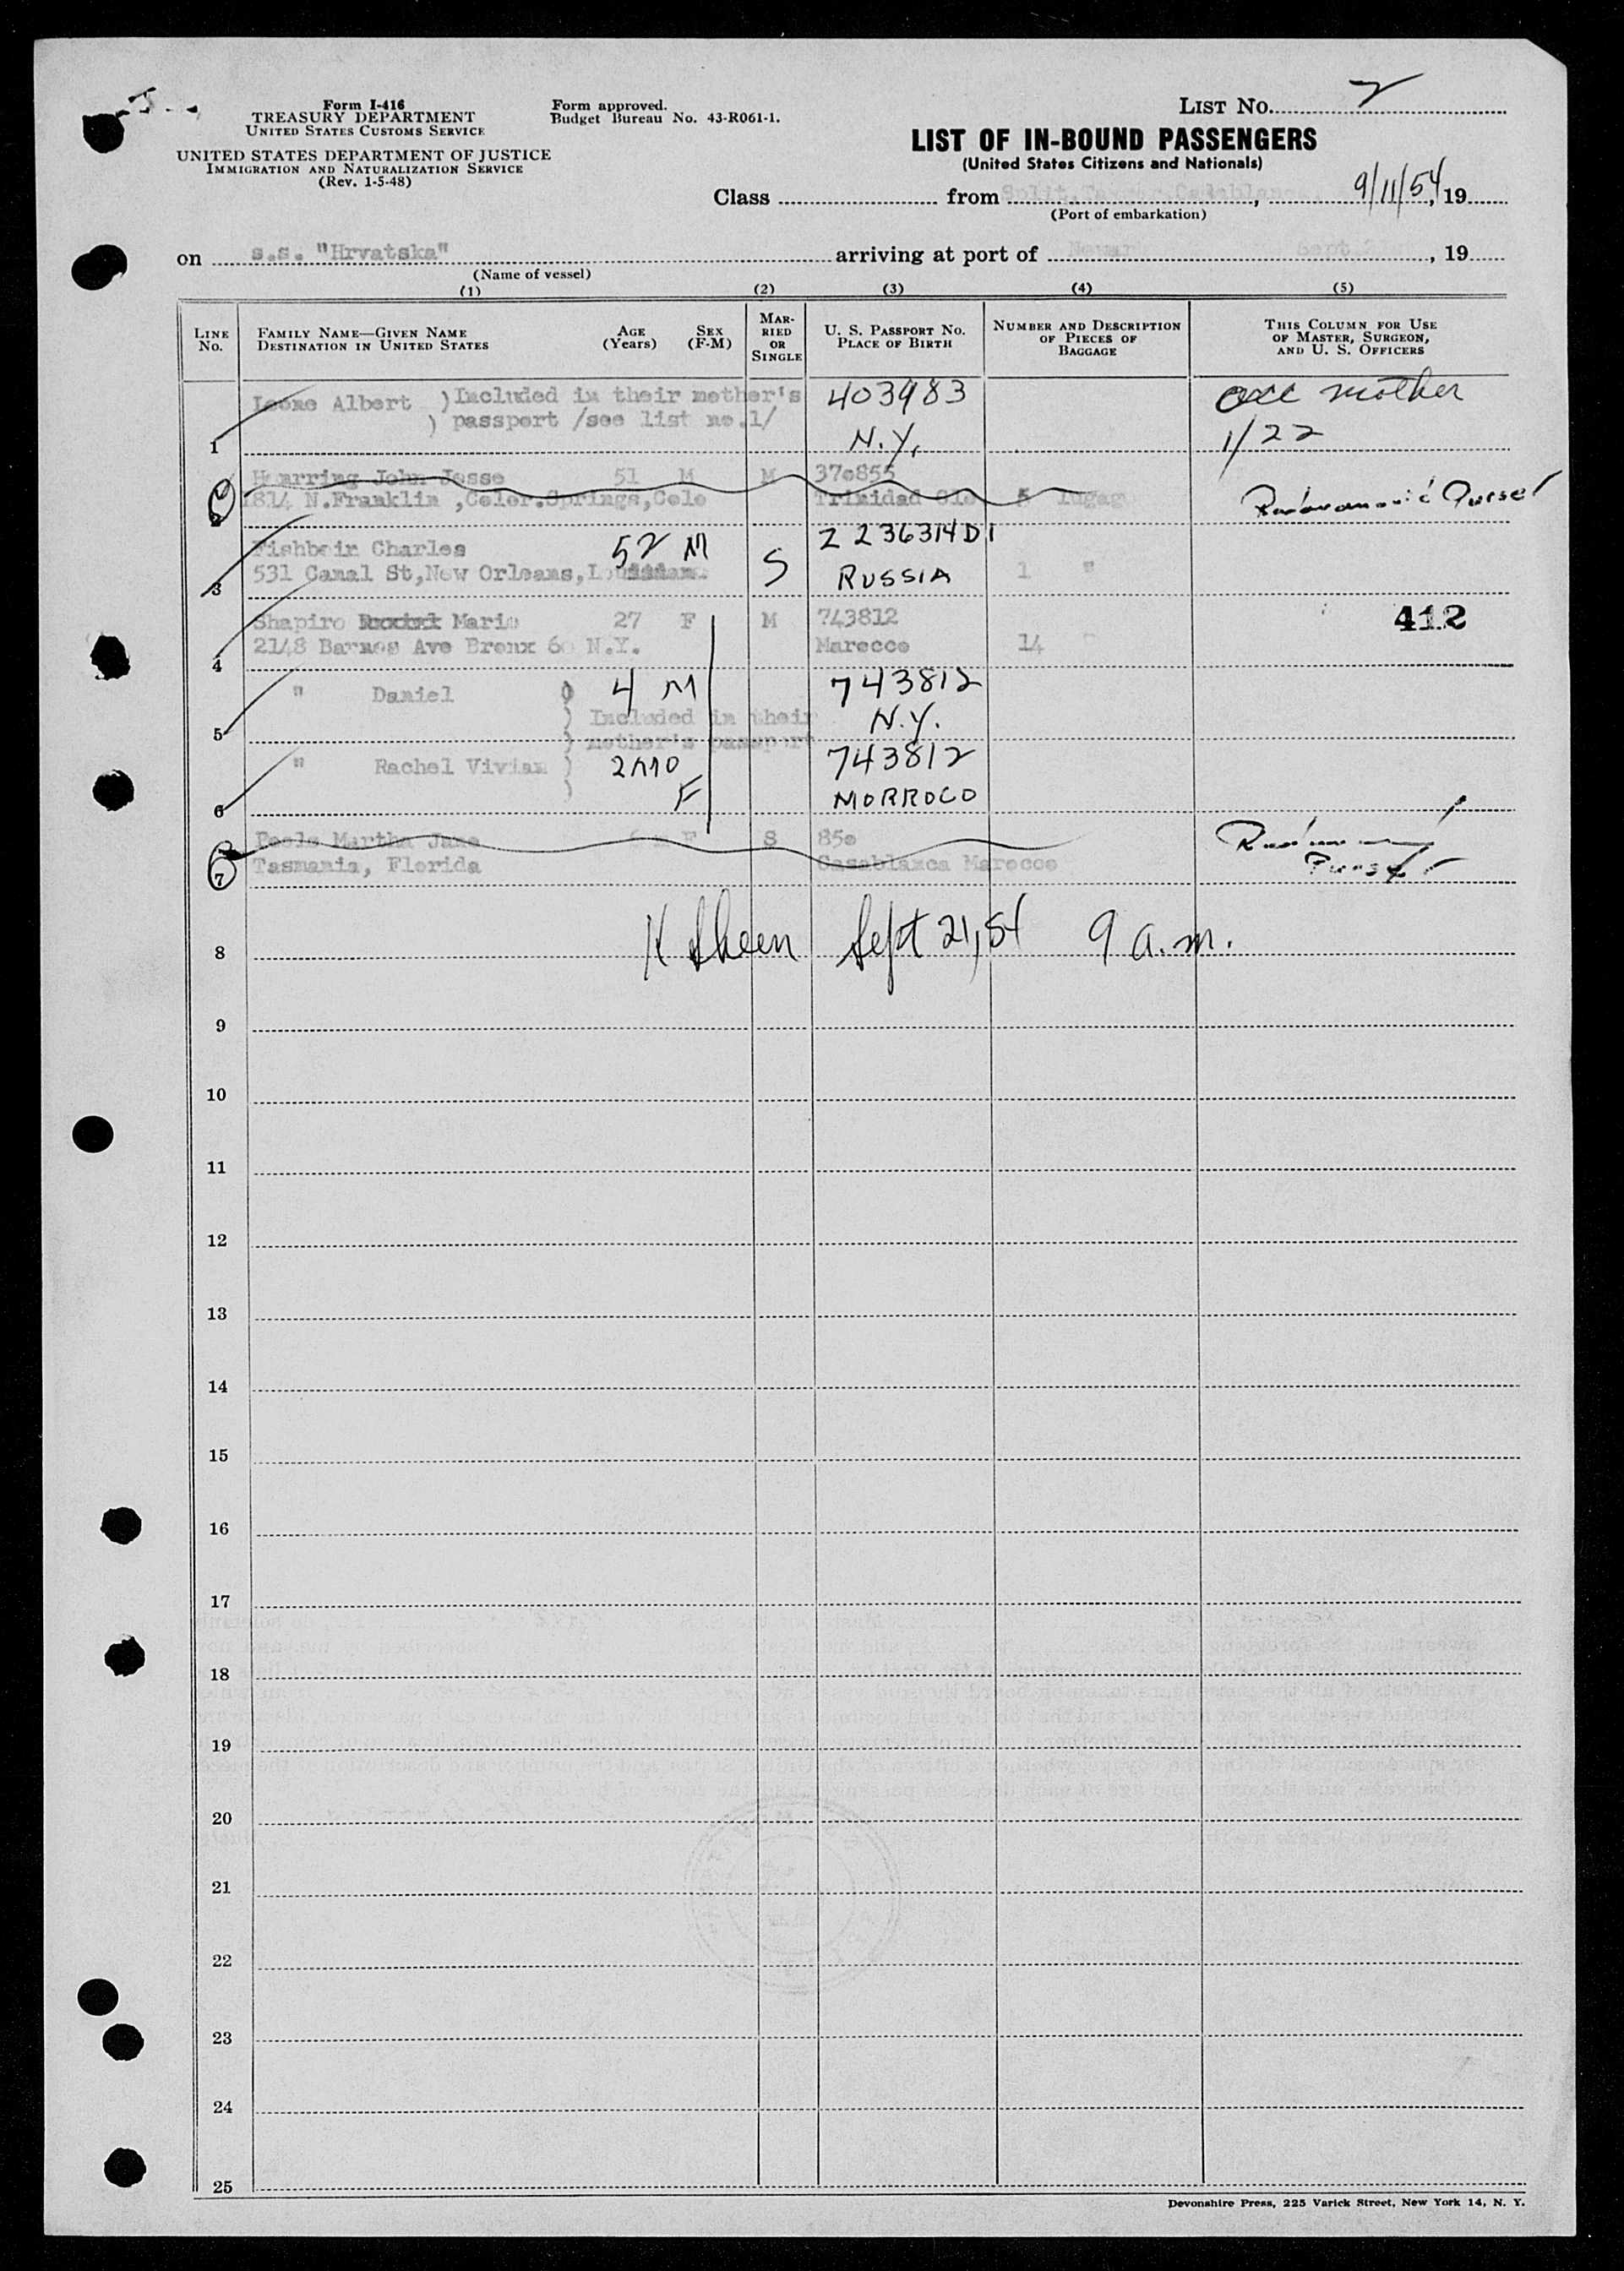 Form I-416
TREASURY DEPARTMENT
UNITED STATES CUSTOMS SERVICE
UNITED STATES DEPARTMENT OF JUSTICE
IMMIGRATION AND NATURALIZATION SERVICE
(Rev. 1-5-48)
Form approved.
Budget Bureau No. 43-R061-1.
LIST No. 2
LIST OF IN-BOUND PASSENGERS
(United States Citizens and Nationals)
Class from Split, Casablanca, 9/11/54, 19
(Port of embarkation)
on s.s. "Hrvatska" arriving at port of Newark Sept , 19
(Name of vessel)
(1) (2) (3) (4) (5)
LINE No. FAMILY NAME—GIVEN NAME DESTINATION IN UNITED STATES AGE (Years) SEX (F-M) MARRIED OR SINGLE U. S. PASSPORT No. PLACE OF BIRTH NUMBER AND DESCRIPTION OF PIECES OF BAGGAGE THIS COLUMN FOR USE OF MASTER, SURGEON, AND U. S. OFFICERS
Albert )Included in their mother's 403983 acc mother
1 ) passport /see list no.1/ N.Y. 1/22
John Jesse 51 M M 370855
2 814 N.Franklin ,Color.Springs,Colo Trinidad 5 Purser
Charles 52 M S Z 236314 D1
3 531 Canal St,New Orleans, RUSSIA 1 "
Shapiro Marie 27 F M 743812 412
4 2148 Barnes Ave Bronx 60 N.Y. Marocco 14
" Daniel ) 4 M 743812
5 ) Included in their N.Y.
) mother's passport
" Rachel Vivian ) 2 F 743812
6 ) MORROCO
Martha Jane F S 850
7 Tasmania, Florida Casablanca Marocco Purser
8 K Sheen Sept 21, 54 9 a.m.
9
10
11
12
13
14
15
16
17
18
19
20
21
22
23
24
25
Devonshire Press, 225 Varick Street, New York 14, N. Y.